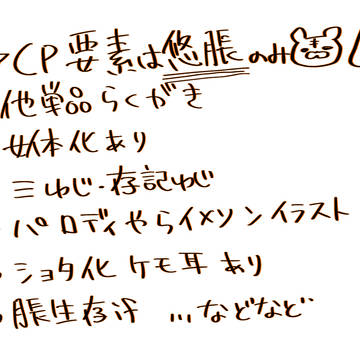 CP要素は悠脹のみ
他単品らくがき
女体化あり
三ゆじ・存記ゆじ
パロディやらイメソンイラスト
ショタ化 ケモ耳 あり
脹生存 …などなど